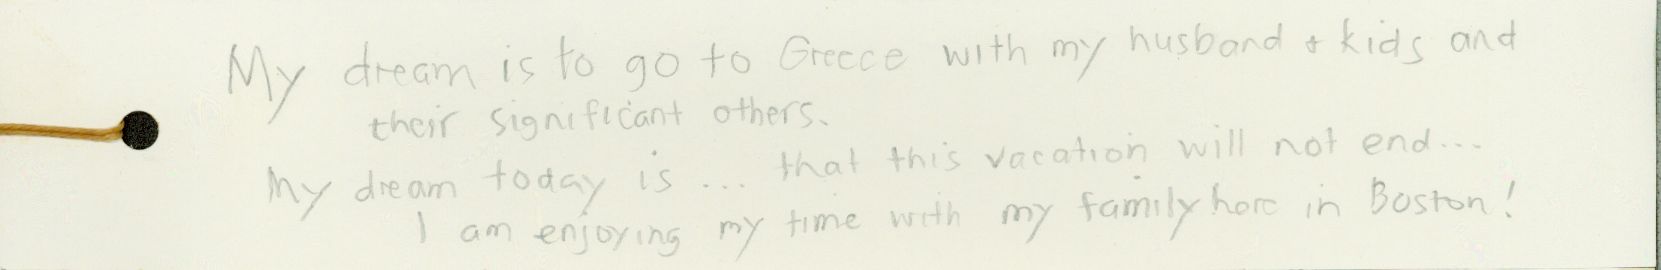 My dream is to go to Greece with my husband + kids and
their significant others.
My dream today is ... that this vacation will not end...
I am enjoying my time with my family here in Boston!